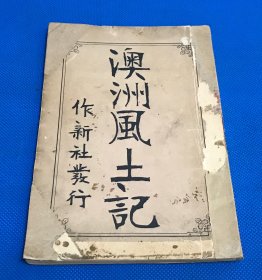 澳洲風土記
作新社發行